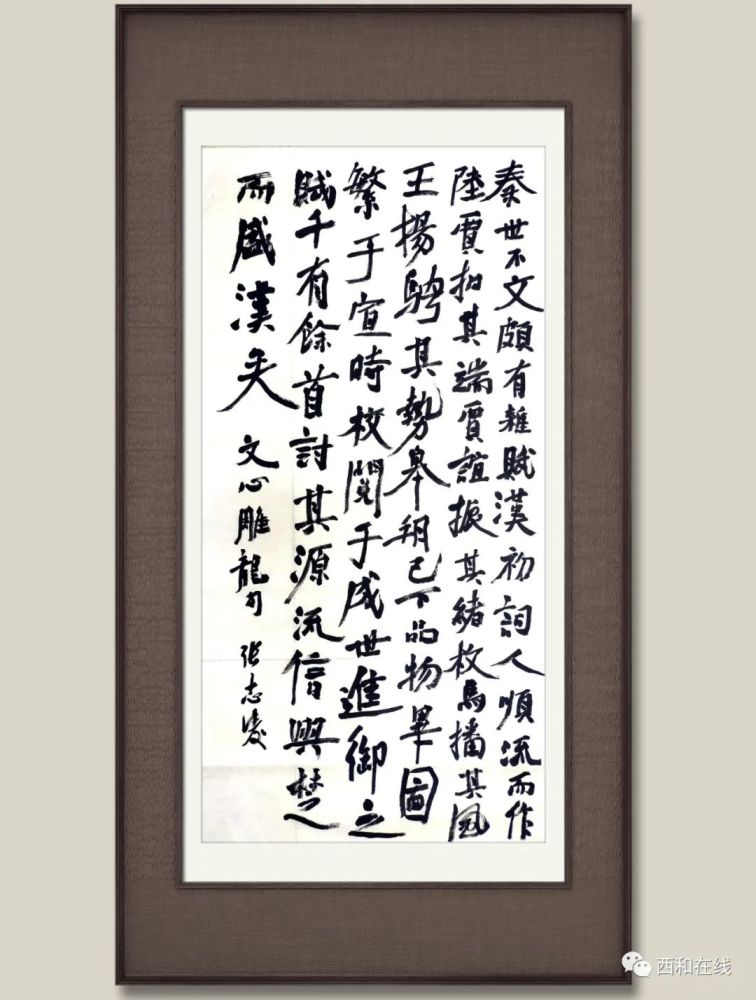 秦世不文頗有雜賦漢初詞人順流而作
陸賈扣其端賈誼振其緒枚馬播其風
王揚騁其勢皋朔已下品物畢圖
繁于宣時校閱于成世進御之
賦千有餘首討其源流信興楚
而盛漢矣
文心雕龍句 張志凌
西和在线